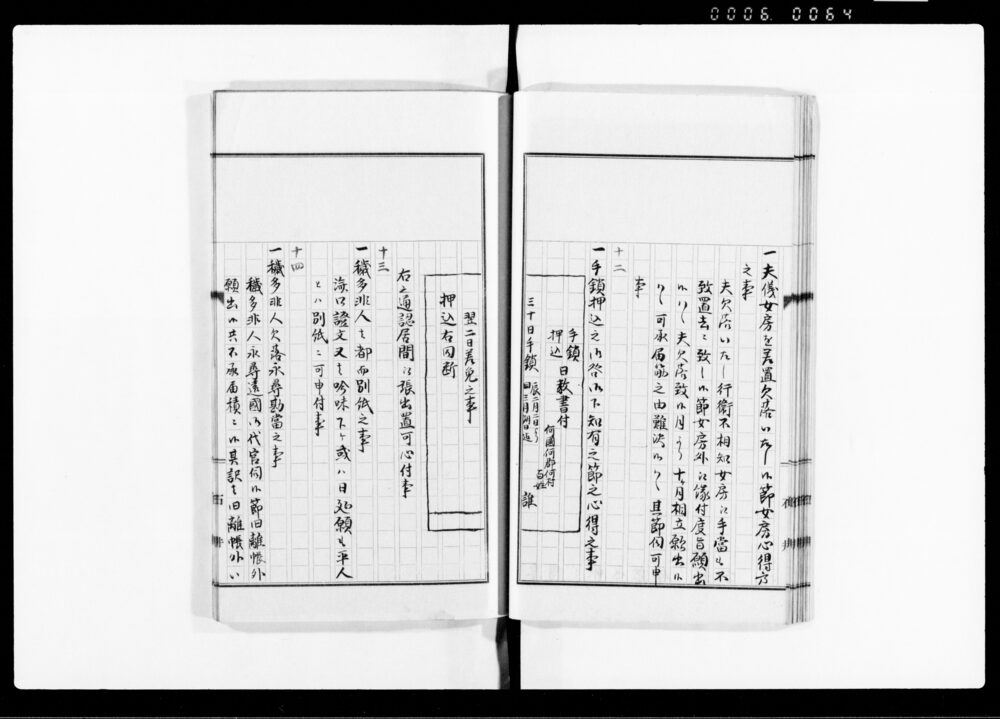 0006. 0064
一夫儀女房を差置欠落いたし候節女房心得方
之事
夫欠落いたし行衛不相知女房江手當も不
致置去ニ致し候節女房外江縁付度旨願出
候ハヽ夫欠落致候月ゟ十ヶ月相立願出候
ハヽ可承届筋之由難決候ハヽ其節伺可申
事
十二
一手鎖押込之御咎御下知有之節之心得之事
手鎖
押込
日数書付
何國何郡何村
百姓
誰
三十日手鎖
辰二月二日ゟ
同三月朔日迄
翌二日差免之事
押込右同断
右之通認居間江張出置可心付事
十三
一穢多非人は都而別紙之事
済口證文又は吟味下ヶ或ハ日延願も平人
とハ別紙ニ可申付事
十四
一穢多非人欠落永尋勘當之事
穢多非人永尋遠國御代官伺候節旧離帳外
願出候共不承届積ニ候其訳は旧離帳外い